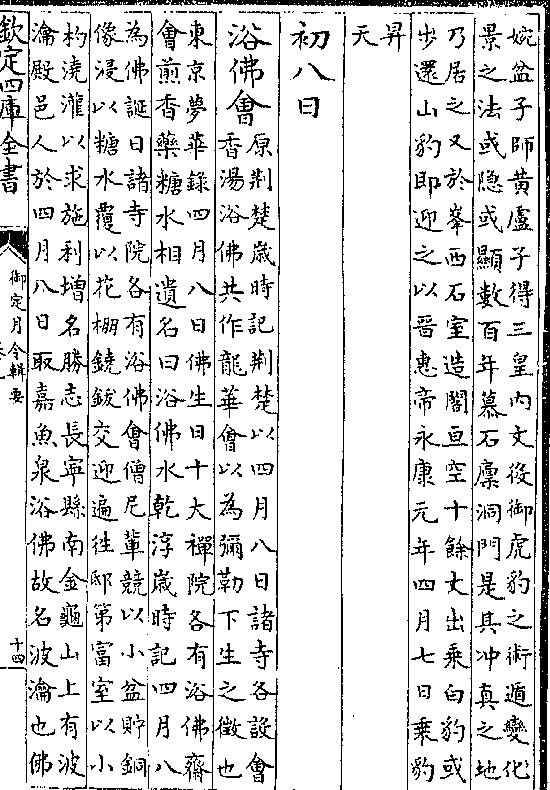 婉盆子師黄盧子得三皇内文役御虎豹之術遁變化
景之法或隐或顯數百年慕石廩洞門是其冲真之地
乃居之又於峯西石室造閣亘空十餘丈出乘白豹或
步還山豹即迎之以晋惠帝永康元年四月七日乘豹
昇
天
初八日
浴佛會
原荆楚歲時記荆楚以四月八日諸寺各設會
香湯浴佛共作龍華會以為彌勒下生之徵也
東京夢華錄四月八日佛生日十大禪院各有浴佛齋
會煎香藥糖水相遺名曰浴佛水乾淳歲時記四月八
為佛誕日諸寺院各有浴佛會僧尼輩競以小盆貯銅
像浸以糖水覆以花棚鐃鈸交迎遍徃邸第富室以小
杓澆灌以求施利增名勝志長寧縣南金龜山上有波
瀹殿邑人於四月八日取嘉魚泉浴佛故名波瀹也佛
欽定四庫全書
御定月令輯要
十四